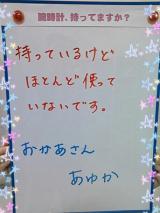 腕時計、持ってますか?
持っているけど
ほとんど使って
いないです。
おかあさん
あゆか